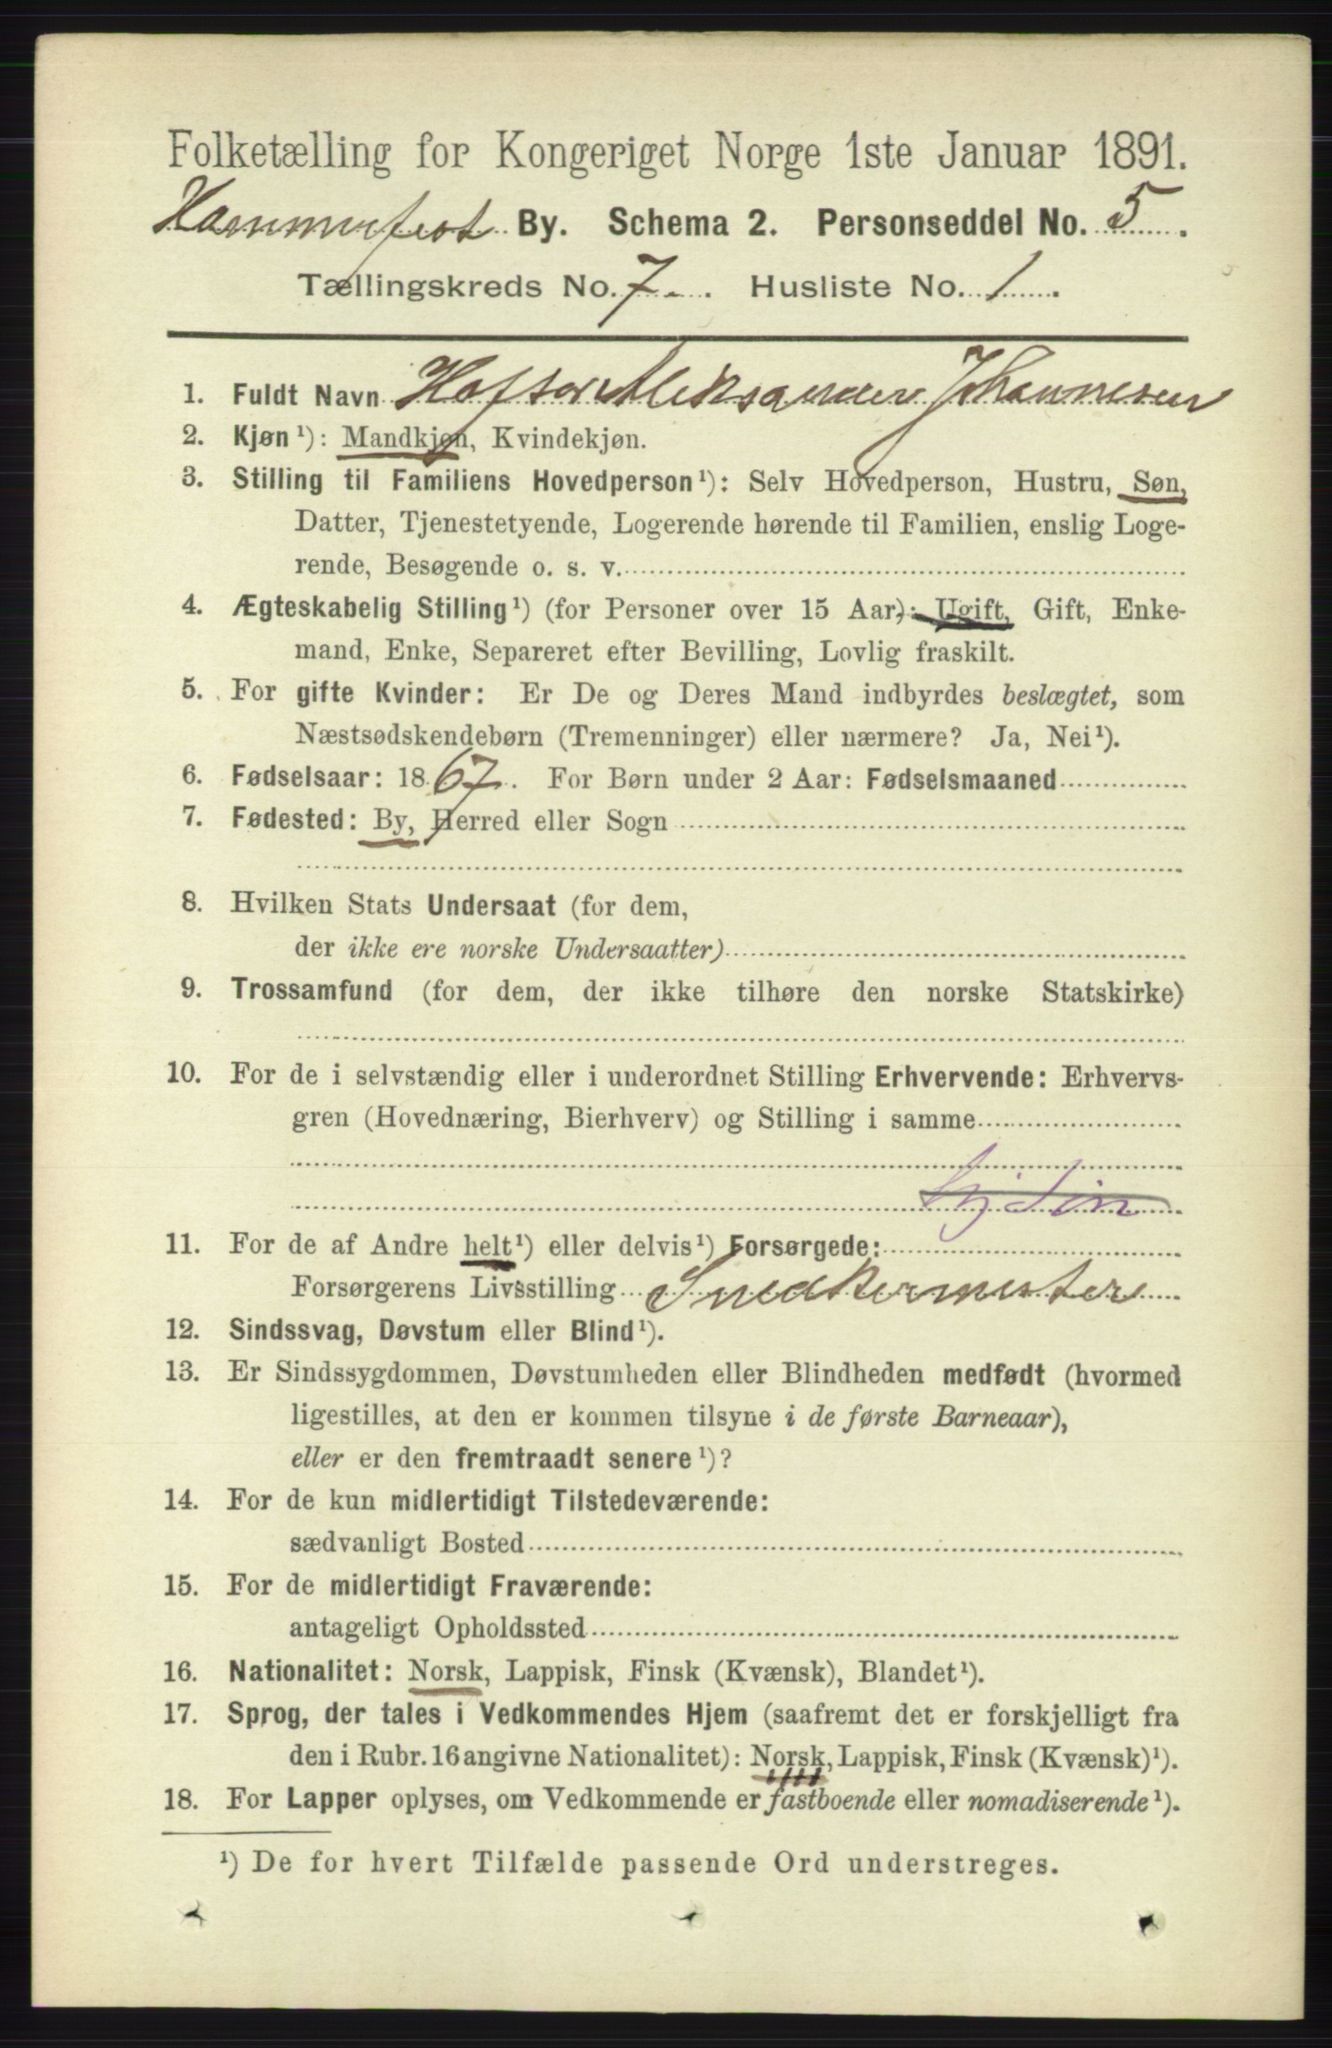 Folketælling for Kongeriget Norge 1ste Januar 1891.
Hammerfest By. Schema 2. Personseddel No. 5.
Tællingskreds No. 7. Husliste No. 1.
1. Fuldt Navn Aleksander Johannesen
2. Kjøn¹): Mandkjøn, Kvindekjøn.
3. Stilling til Familiens Hovedperson¹): Selv Hovedperson, Hustru, Søn,
Datter, Tjenestetyende, Logerende hørende til Familien, enslig Loge-
rende, Besøgende o. s. v.
4. Ægteskabelig Stilling¹) (for Personer over 15 Aar): Ugift, Gift, Enke-
mand, Enke, Separeret efter Bevilling, Lovlig fraskilt.
5. For gifte Kvinder: Er De og Deres Mand indbyrdes beslægtet, som
Næstsødskendebørn (Tremenninger) eller nærmere? Ja, Nei¹).
6. Fødselsaar: 1867. For Børn under 2 Aar: Fødselsmaaned
7. Fødested: By, Herred eller Sogn
8. Hvilken Stats Undersaat (for dem,
der ikke ere norske Undersaatter)
9. Trossamfund (for dem, der ikke tilhøre den norske Statskirke)
10. For de i selvstændig eller i underordnet Stilling Erhvervende: Erhvervs-
gren (Hovednæring, Bierhverv) og Stilling i samme
11. For de af Andre helt¹) eller delvis¹) Forsørgede:
Forsørgerens Livsstilling Snedkermester
12. Sindssvag, Døvstum eller Blind¹).
13. Er Sindssygdommen, Døvstumheden eller Blindheden medfødt (hvormed
ligestilles, at den er kommen tilsyne i de første Barneaar),
eller er den fremtraadt senere¹)?
14. For de kun midlertidigt Tilstedeværende:
sædvanligt Bosted
15. For de midlertidigt Fraværende:
antageligt Opholdssted
16. Nationalitet: Norsk, Lappisk, Finsk (Kvænsk), Blandet¹).
17. Sprog, der tales i Vedkommendes Hjem (saafremt det er forskjelligt fra
den i Rubr. 16 angivne Nationalitet): Norsk, Lappisk, Finsk (Kvænsk)¹).
18. For Lapper oplyses, om Vedkommende er fastboende eller nomadiserende¹).
¹) De for hvert Tilfælde passende Ord understreges.